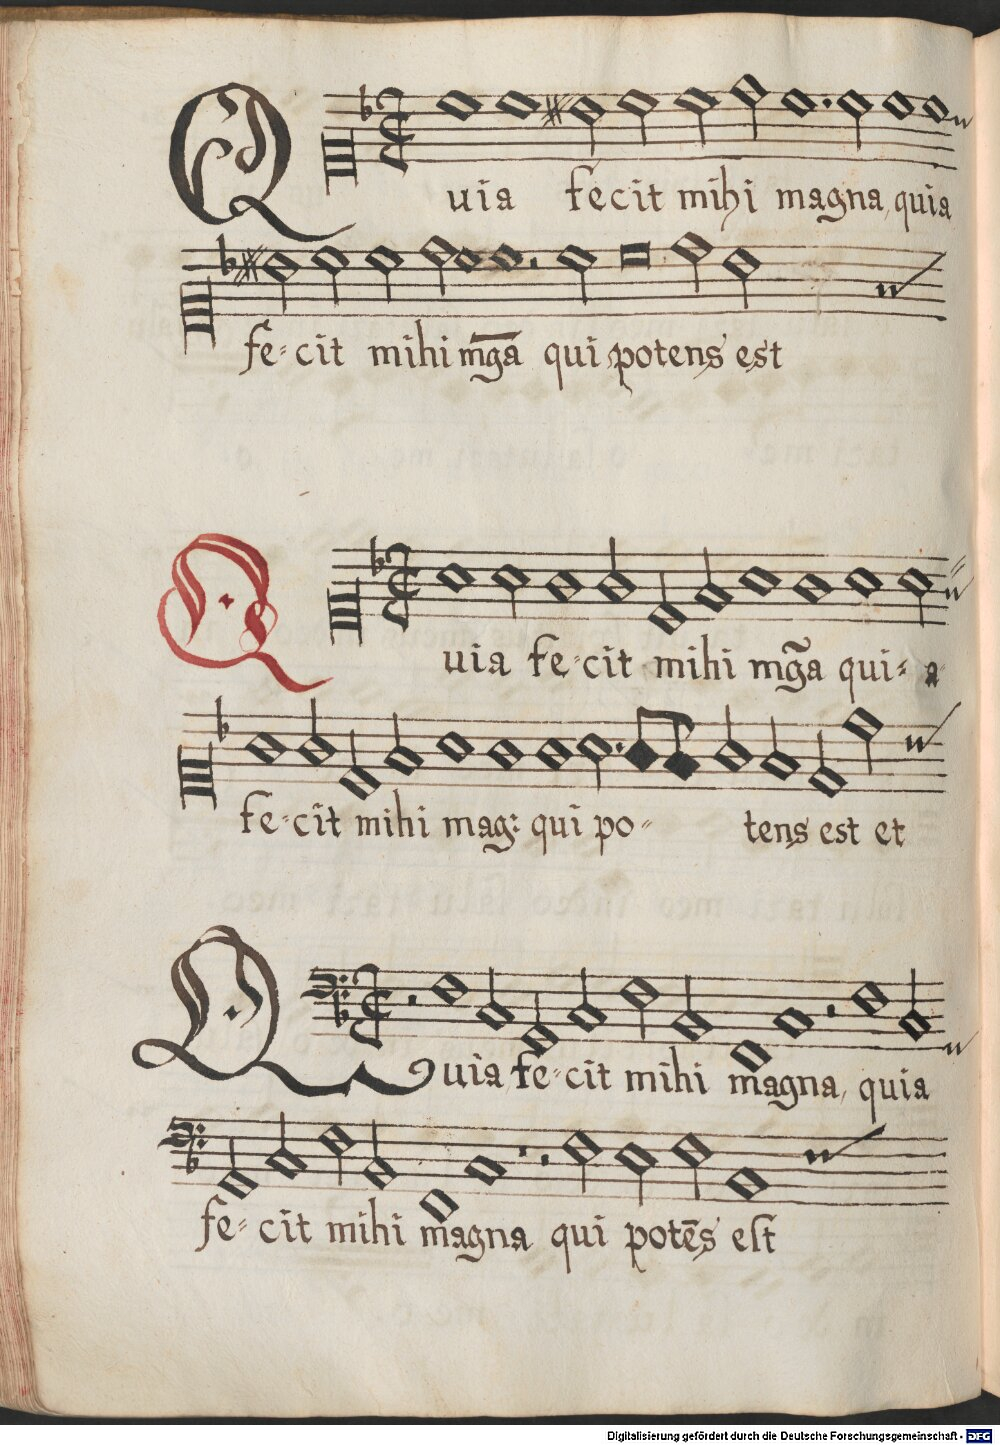 Quia fecit mihi magna, quia
fe-cit mihi mḡa qui potens est
Quia fe-cit mihi mg̃a qui-a
fe-cit mihi mag: qui po- tens est et
Quia fe-cit mihi magna, quia
fe-cit mihi magna qui potēs eſt
Digitalisierung gefördert durch die Deutsche Forschungsgemeinschaft - DFG